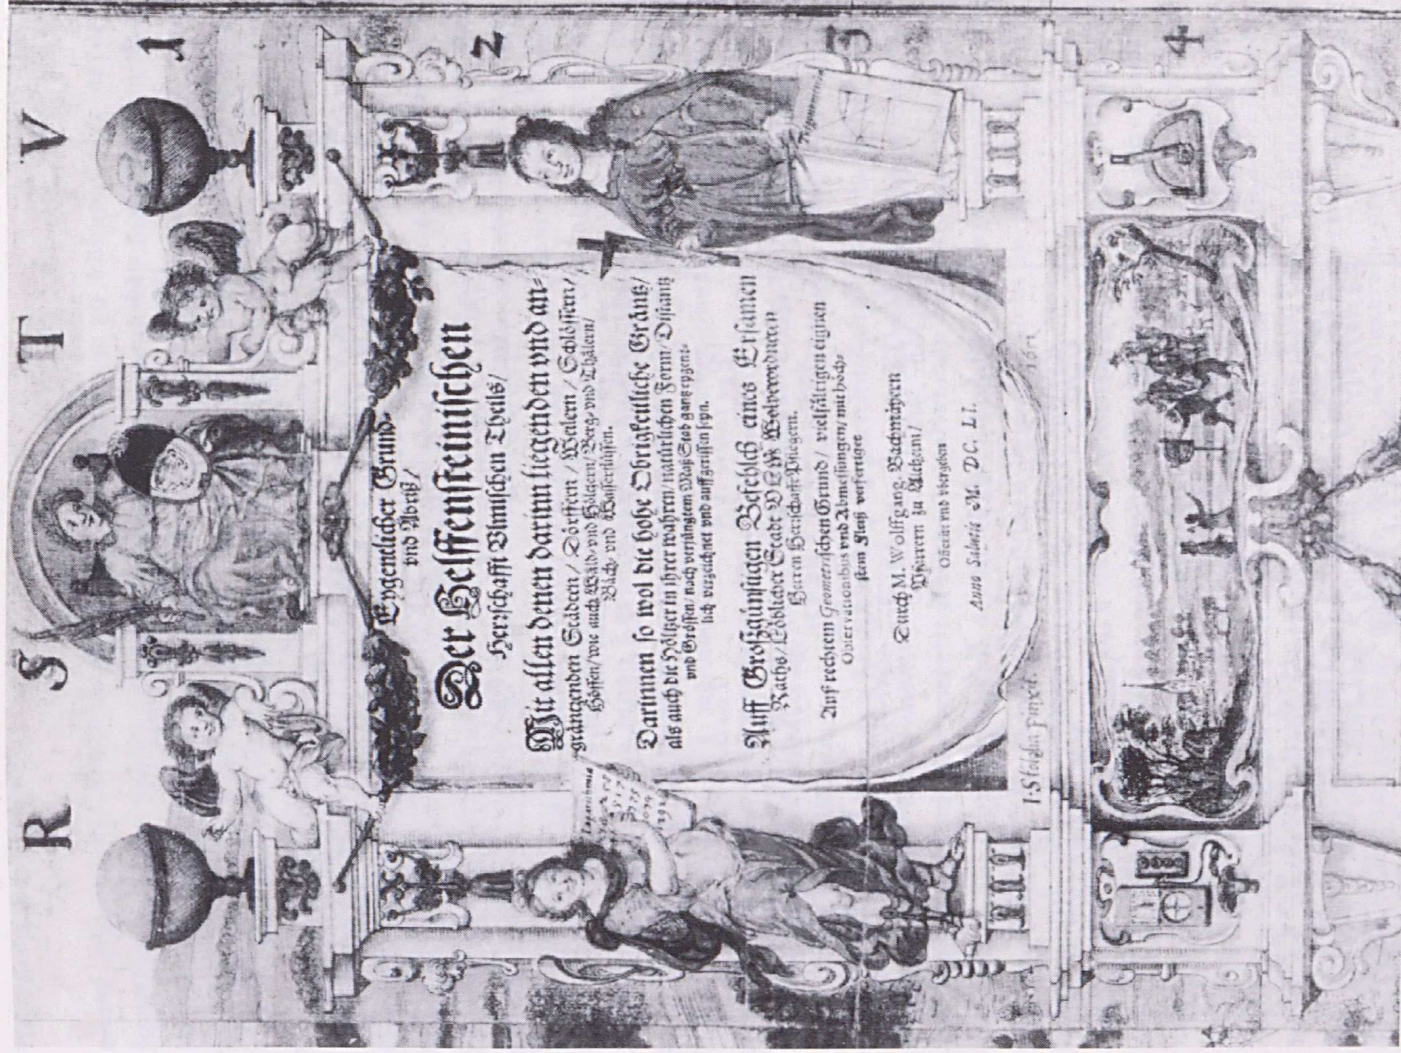 R S T V
1
2
3
4
Eygentlicher Grund-
vnd Abriß/
Der Helffensteinischen
Herrschafft Vlmischen Theils/
Mit allen denen darinn liegenden vnd an-
gräntzenden Städten/Dörffern/Weilern/Schlössern/
Höffen/wie auch Wäld- vnd Höltzern/Berg- vnd Thälern/
Bäch- vnd Wasserflüssen.
Darinnen so wol die hohe Obrigkeitliche Gräntz/
als auch die Höltzer in ihrer wahren/natürlichen Form/Distantz
vnd Grössen/nach verjüngtem Maß-Stab gantz eygent-
lich verzeichnet vnd auffgerissen seyn.
Auff Großgünstigen Befelch eines Ersamen
Raths/Löblicher Stadt VLM Wolverordneten
Herren Herrschafft-Pflegern.
Auß rechtem Geometrischen Grund/ vielfältigen eignen
Observationibus vnd Abmessungen/mit höch-
stem Fleiß verfertigt
Durch M. Wolffgang. Bachmäyern
Pfarrern zu
Offerirt vnd vbergeben
Anno Salutis M. DC. LI.
pinxit 1651